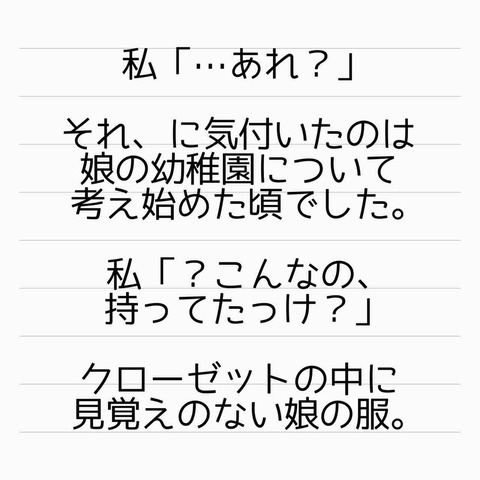 私「…あれ？」
それ、に気付いたのは
娘の幼稚園について
考え始めた頃でした。
私「？こんなの、
持ってたっけ？」
クローゼットの中に
見覚えのない娘の服。